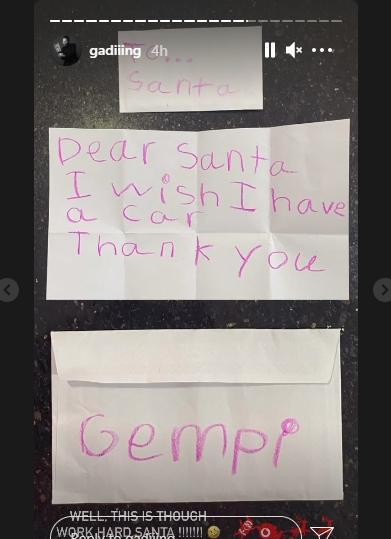 gadiiing 4h
To...
Santa
Dear Santa
I wish I have
a car
Thank you
Gempi
WELL, THIS IS THOUGH
WORK HARD SANTA !!!!!!!
Reply to gadiiing